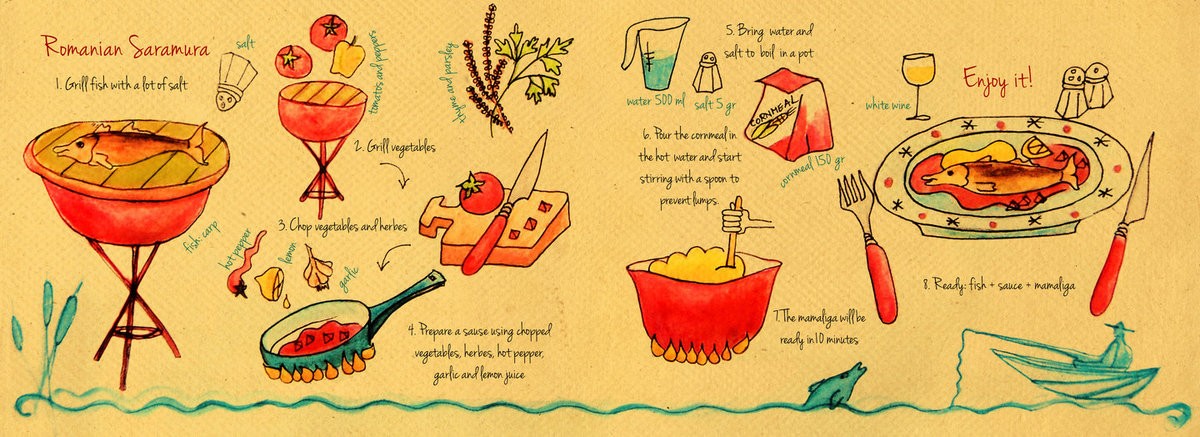 Romanian Saramura
salt
1. Grill fish with a lot of salt
fish: carp
tomatos and peppers
2. Grill vegetables
thyme and parsley
3. Chop vegetables and herbes
hot pepper
lemon
garlic
4. Prepare a sause using chopped
vegetables, herbes, hot pepper,
garlic and lemon juice
5. Bring water and
salt to boil in a pot
water 500 ml
salt 5 gr
CORNMEAL
cornmeal 150 gr
6. Pour the cornmeal in
the hot water and start
stirring with a spoon to
prevent lumps.
7. The mamaliga will be
ready in 10 minutes
white wine
Enjoy it!
8. Ready: fish + sauce + mamaliga